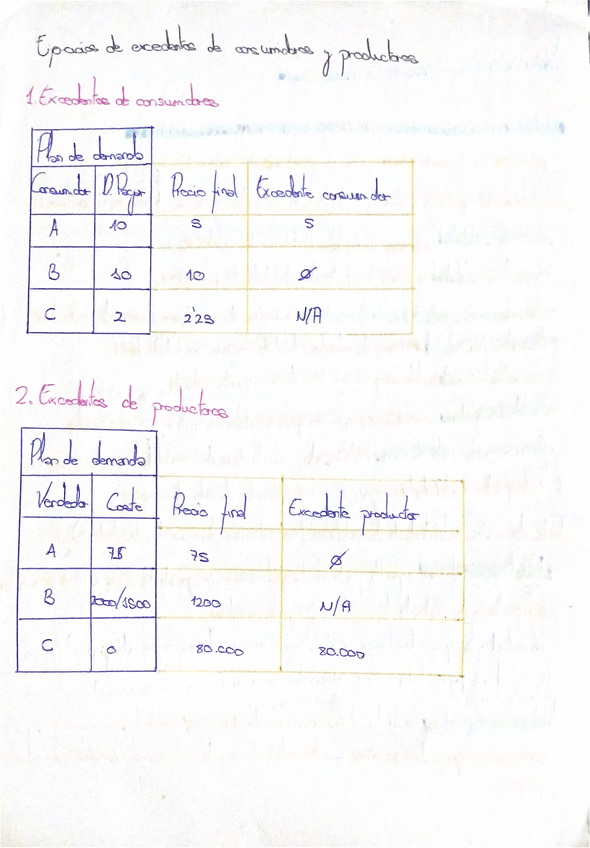 Ejercicios de excedentes de consumidores y productores
1. Excedentes de consumidores
Plan de demanda
Consumidor D. Pagar Precio final Excedente consumidor
A 10 5 5
B 10 10 Ø
C 2 2'25 N/A
2. Excedentes de productores
Plan de demanda
Vendedor Coste Precio final Excedente productor
A 75 75 Ø
B /1500 1200 N/A
C 0 80.000 80.000